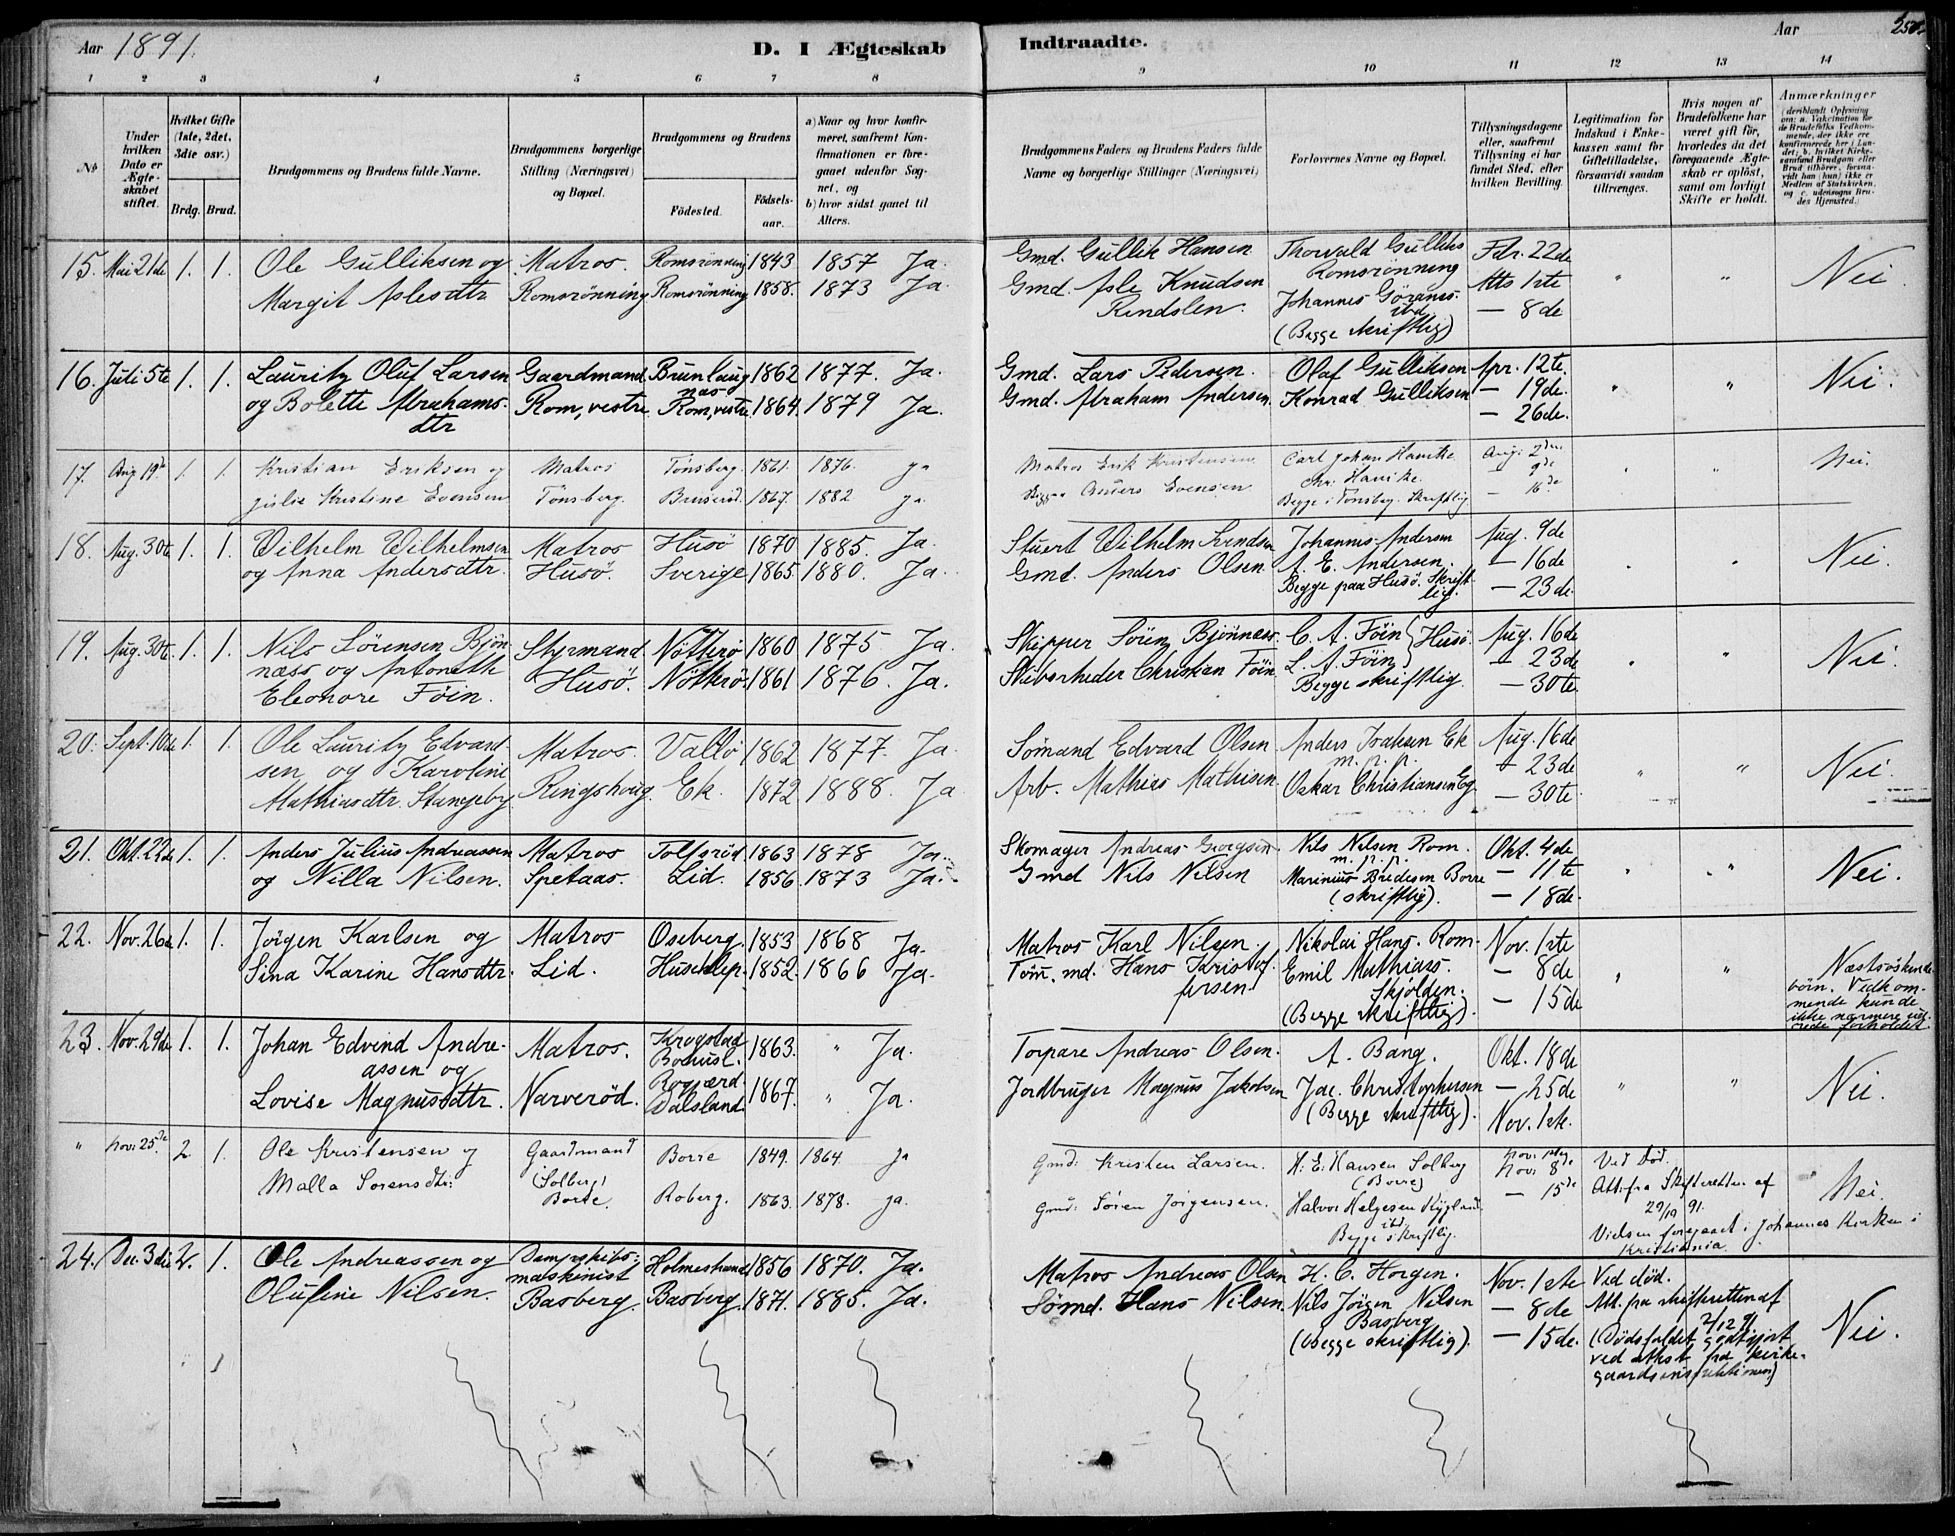 Aar 1891. D. I Ægteskab Indtraadte. Aar 250.
1 2 3 4 5 6 7 8 9 10 11 12 13 14
No.
Under hvilken Dato er Ægteskabet stiftet.
Hvilket Gifte (1ste, 2det, 3die osv.)
Brdg. Brud.
Brudgommens og Brudens fulde Navne.
Brudgommens borgerlige Stilling (Næringsvei) og Bopæl.
Brudgommens og Brudens
Födested. Födsels-aar.
a) Naar og hvor konfirmeret, saafremt Konfirmationen er foregaaet udenfor Sognet, og
b) hvor sidst gaaet til Alters.
Brudgommens Faders og Brudens Faders fulde Navne og borgerlige Stillinger (Næringsvei)
Forlovernes Navne og Bopæl.
Tillysningsdagene eller, saafremt Tillysning ei har fundet Sted, efter hvilken Bevilling.
Legitimation for Indskud i Enkekassen samt for Giftetilladelse, forsaavidt saadan tiltrænges.
Hvis nogen af Brudefolkene har været gift för, hvorledes da det foregaaende Ægteskab er oplöst, samt om lovligt Skifte er holdt.
Anmærkninger
15. Mai 21de 1. 1. Ole Gulliksen og Matros. Romsrönning 1843 1857 Ja. Gmd. Gullik Hansen Thorvald Gulliks. Fdr. 22de " " Nei.
Margit Aslesdtr Romsrönning Romsrönning 1858. 1873 Ja. Gmd. Asle Knudsen Romsrönning Mts 1ste
Rindslen. Johannes Göranes. ibd. — 8de
(Begge skriftlig)
16. Juli 5te 1. 1. Lauritz Oluf Larsen Gaardmand Brunlaugnæs 1862 1877. Ja. Gmd. Lars Pedersen. Olaf Gulliksen Apr. 12te. " " Nei.
og Bolette Abrahams- Rom, vestre Rom, vestre 1864. 1879 Ja. Gmd. Abraham Andersen. Konrad Gulliksen — 19de.
dtr — 26de.
17. Aug 19de 1. 1. Kristian Eriksen og Matros Tönsberg. 1861. 1876. ja Matros Erik Kristensen Carl Johan Hanike Aug: 2den " " Nei.
Julie Kristine Evensen Tönsberg. Bruserød. 1867. 1882 ja. Anders Evensen Chr: Hanike. — 9de
Begge i Tönsberg. Skriftlig — 16de
18. Aug. 30te 1. 1. Wilhelm Wilhelmsen Matros Husö 1870 1885. Ja. Stuert Wilhelm Svendsen Johannes Andersen Aug. 9de " " Nei.
og Anna Andersdtr. Husö. Sverige 1865 1880. Ja. Gmd. Anders Olsen. A. E. Andersen. — 16de
Begge paa Husö. Skriftlig. — 23de.
19. Aug. 30te. 1. 1. Nils Sörensen Bjön- Styrmand Nötterö 1860 1875 Ja. Skipper Sören Bjönnæss. C. A. Föin } Husö. Aug. 16de " " Nei.
næss og Antonette Husö. Nötterö. 1861 1876. Ja. Skibsrheder Christian Föin L. A. Föin — 23de
Eleonore Föin. Begge skriftlig. — 30te
20. Sept. 10de 1. 1. Ole Lauritz Edvard- Matros. Vallö 1862 1877. Ja. Sömand Edvard Olsen Anders Isaksen Ek Aug. 16de " " Nei.
sen og Karoline Ringshoug. Ek. 1872 1888. Ja Arb. Mathias Mathisen. m. p. p. — 23de
Mathiasdtr. Stangeby Oskar Christiansen Eg. — 30te
21. Okt. 22de 1. 1. Anders Julius Andreassen Matros Tolfsröd. 1863 1878 Ja. Skomager Andreas Georgsen. Nils Nilsen Rom. Okt. 4de " " Nei.
og Nilla Nilsen. Spetaas. Lid. 1856. 1873 Ja. Gmd Nils Nilsen m. p. p. — 11te
Marinius Bredesen Borre
(skriftlig). — 18de.
22. Nov. 26de 1. 1. Jörgen Karlsen og Matros Oseberg. 1853 1868 Ja. Matros Karl Nilsen. Nikolai Hans. Rom. Nov. 1ste " "
Sina Karine Hansdtr. Lid. Huseklep. 1852. 1866 Ja. Töm. md. Hans Kristof- Emil Mathias. — 8de
fersen. Skjölden. — 15de
(Begge skriftlig).
Næstsöskende-
börn. Vedkom-
mende kunde
ikke nærmere udrede forholdet.
23. Nov. 29de 1. 1. Johan Edvind Andre- Matros. Krogstad Bohusl. 1863. " Ja. Torpare Andreas Olsen. A. Bang. Okt. 18de " " Nei.
assen og
Lovise Magnusdtr. Narveröd. Dalsland. 1867. " Ja. Jordbruger Magnus Jakobsen Jac. Christophersen — 25de
(Begge skriftlig). Nov. 1ste.
" Nov: 25de 2 1. Ole Kristensen og Gaardmand Borre 1849. 1864. ja Gmd: Kristen Larsen. H. E. Hansen Solberg (Borre) Nov: 8de Ved Död. Nei.
Malla Sorensdtr: (Solberg) Borre. Roberg. 1863. 1878. ja. Gmd: Sören Jörgensen. Halvor Helgesen ibd — 15de Att. fra Skifteretten af 29/10 91.
Begge skriftlig. Vielsen foregaaet i Johannes Kirken i Kristiania.
24. Dec. 3die 2. 1. Ole Andreassen og Dampskibs- Holmestrand 1856 1870. Ja. Matros Andreas Olsen H. C. Horgen. Nov. 1ste Ved död. Nei.
Olufine Nilsen. maskinist Basberg. Basberg. 1871. 1885. Ja. Sömd. Hans Nilsen. Nils Jörgen Nilsen — 8de Att. fra skifteretten af 2/12 91
Basberg — 15de. (Dödsfaldet godtgjort
(Begge skriftlig). ved attest fra kirke-
gaardsinspektionen)